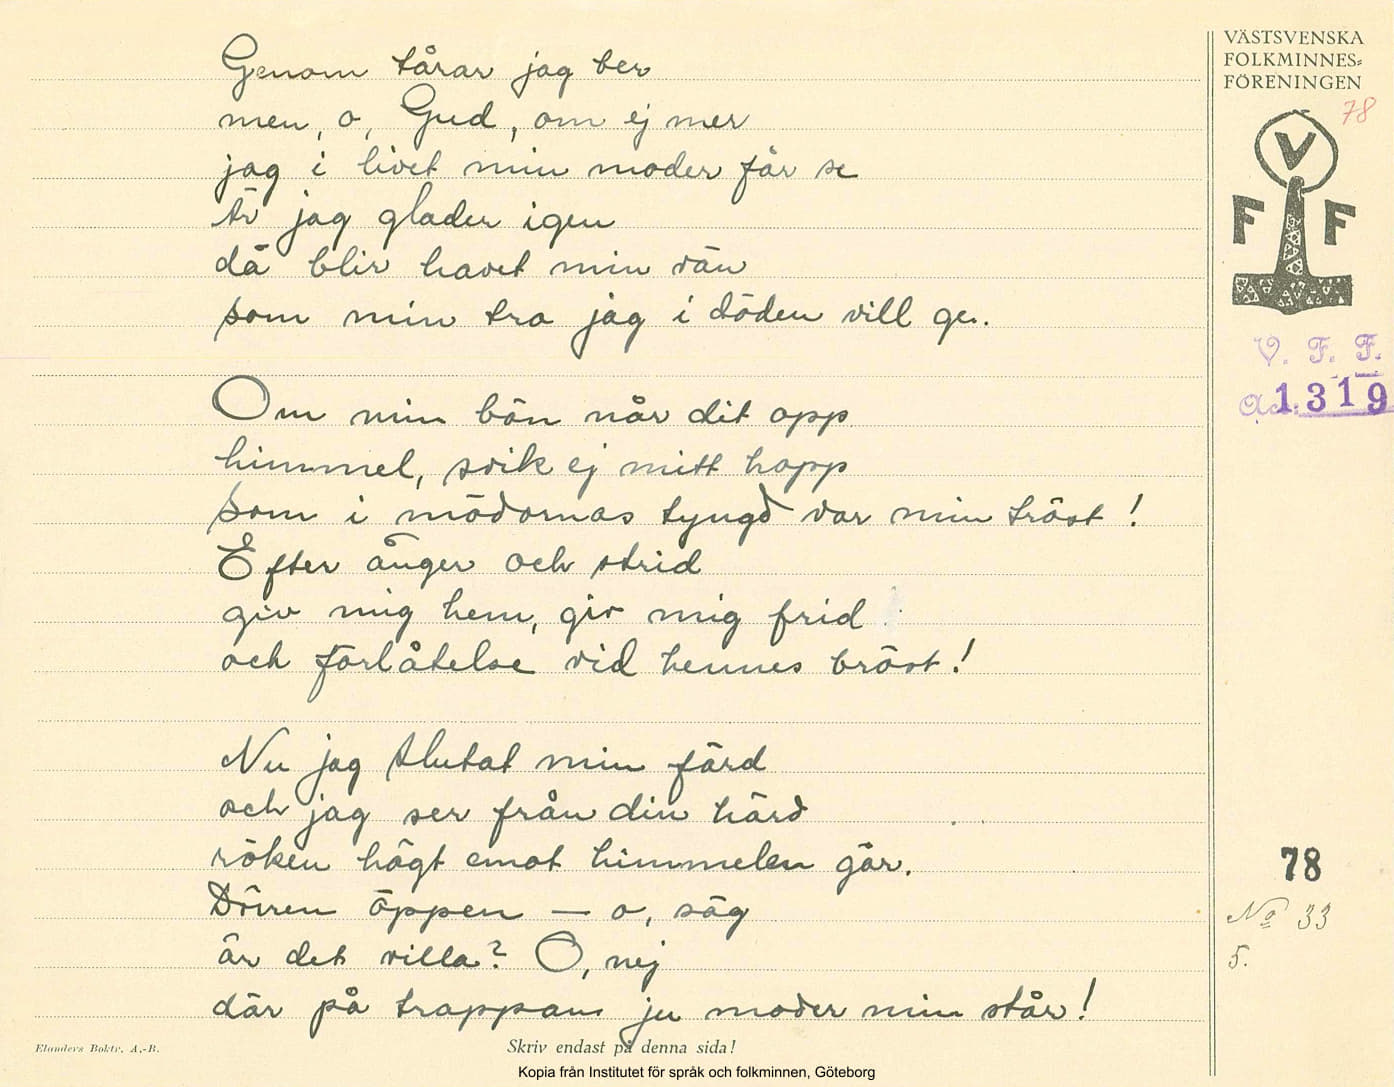 VÄSTSVENSKA
FOLKMINNES=
FÖRENINGEN
78
V
F F
V. F. F.
1319
Genom tårar jag ber
men, o, Gud, om ej mer
jag i livet min moder får se
är jag glader igen
då blir havet min vän
som min tro jag i döden vill ge.
Om min bön når dit opp
himmel, svik ej mitt hopp
som i mödornas tyngd var min tröst!
Efter ånger och strid
giv mig hem, giv mig frid
och förlåtelse vid hennes bröst!
Nu jag slutat min färd
och jag ser från din härd
röken högt emot himmelen går.
Dörren öppen — o, säg
är det villa? O, nej
där på trappan ju moder min står!
78
No 33
5.
Elanders Boktr. A.-B.
Skriv endast på denna sida!
Kopia från Institutet för språk och folkminnen, Göteborg